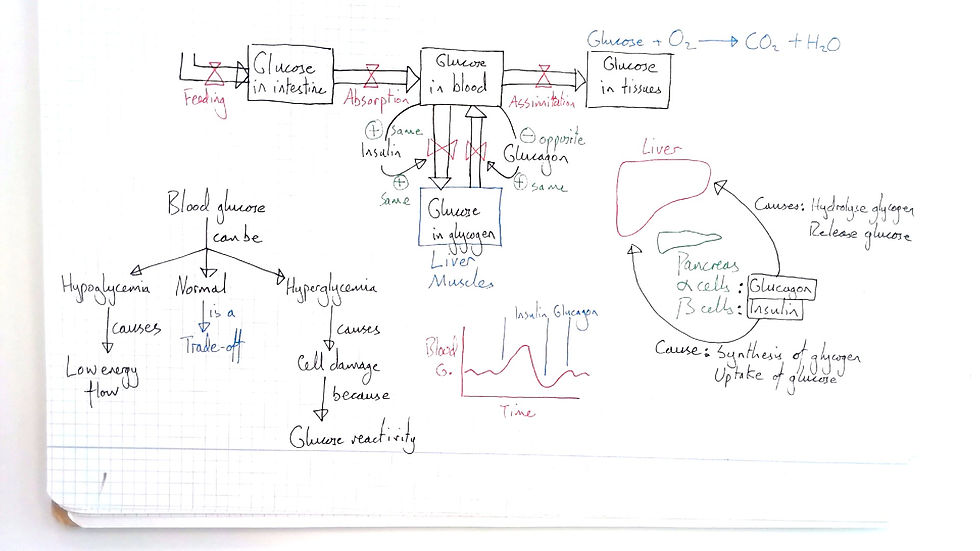 Glucose + O₂ → CO₂ + H₂O
Glucose
in intestine
Glucose
in blood
Glucose
in tissues
Feeding
Absorption
Assimilation
⊕ same
Insulin
⊖ opposite
Glucagon
⊕
same
⊕ same
Glucose
in glycogen
Liver
Muscles
Blood glucose
can be
Hypoglycemia
Normal
Hyperglycemia
causes
is a
causes
Low energy
flow
Trade-off
Cell damage
because
Glucose reactivity
Insulin
Glucagon
Blood
G.
Time
Liver
Causes: Hydrolyse glycogen
Release glucose
Pancreas
α cells: Glucagon
β cells: Insulin
Cause: Synthesis of glycogen
Uptake of glucose